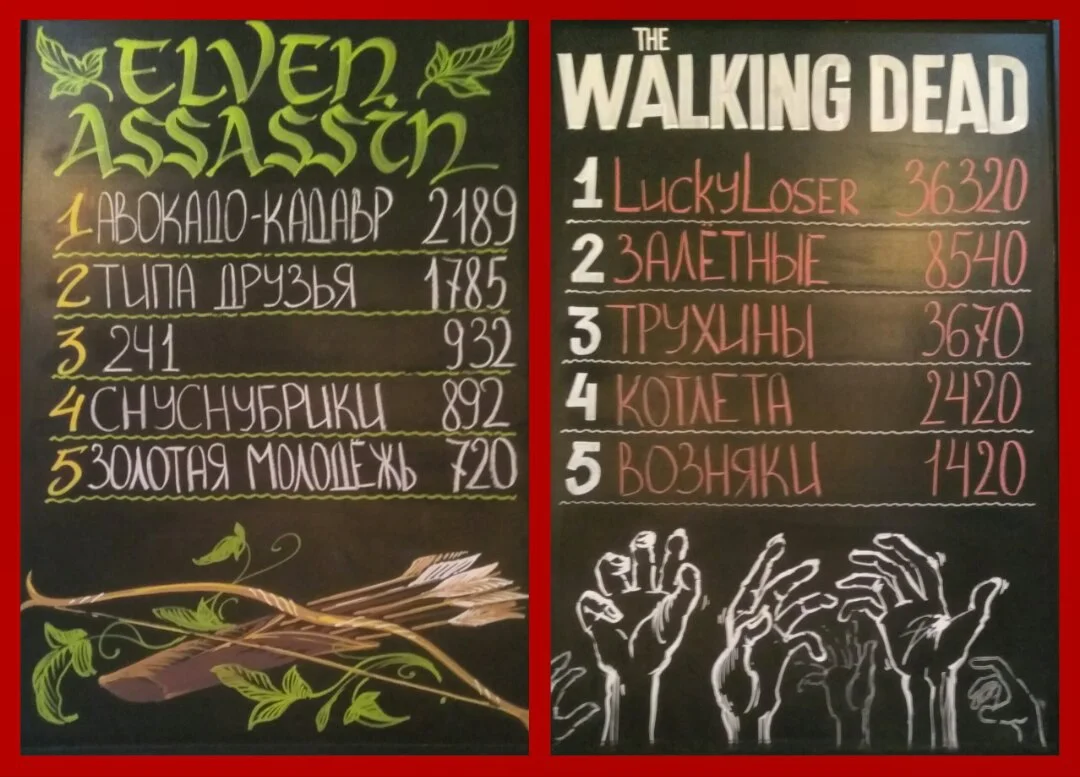 ELVEN
ASSASSIN
1 АВОКАДО-КАДАВР 2189
2 ТИПА ДРУЗЬЯ 1785
3 241 932
4 СНУСНУБРИКИ 892
5 ЗОЛОТАЯ МОЛОДЁЖЬ 720
THE
WALKING DEAD
1 LUCKYLOSER 36320
2 ЗАЛЁТНЫЕ 8540
3 ТРУХИНЫ 3670
4 КОТЛЕТА 2420
5 ВОЗНЯКИ 1420